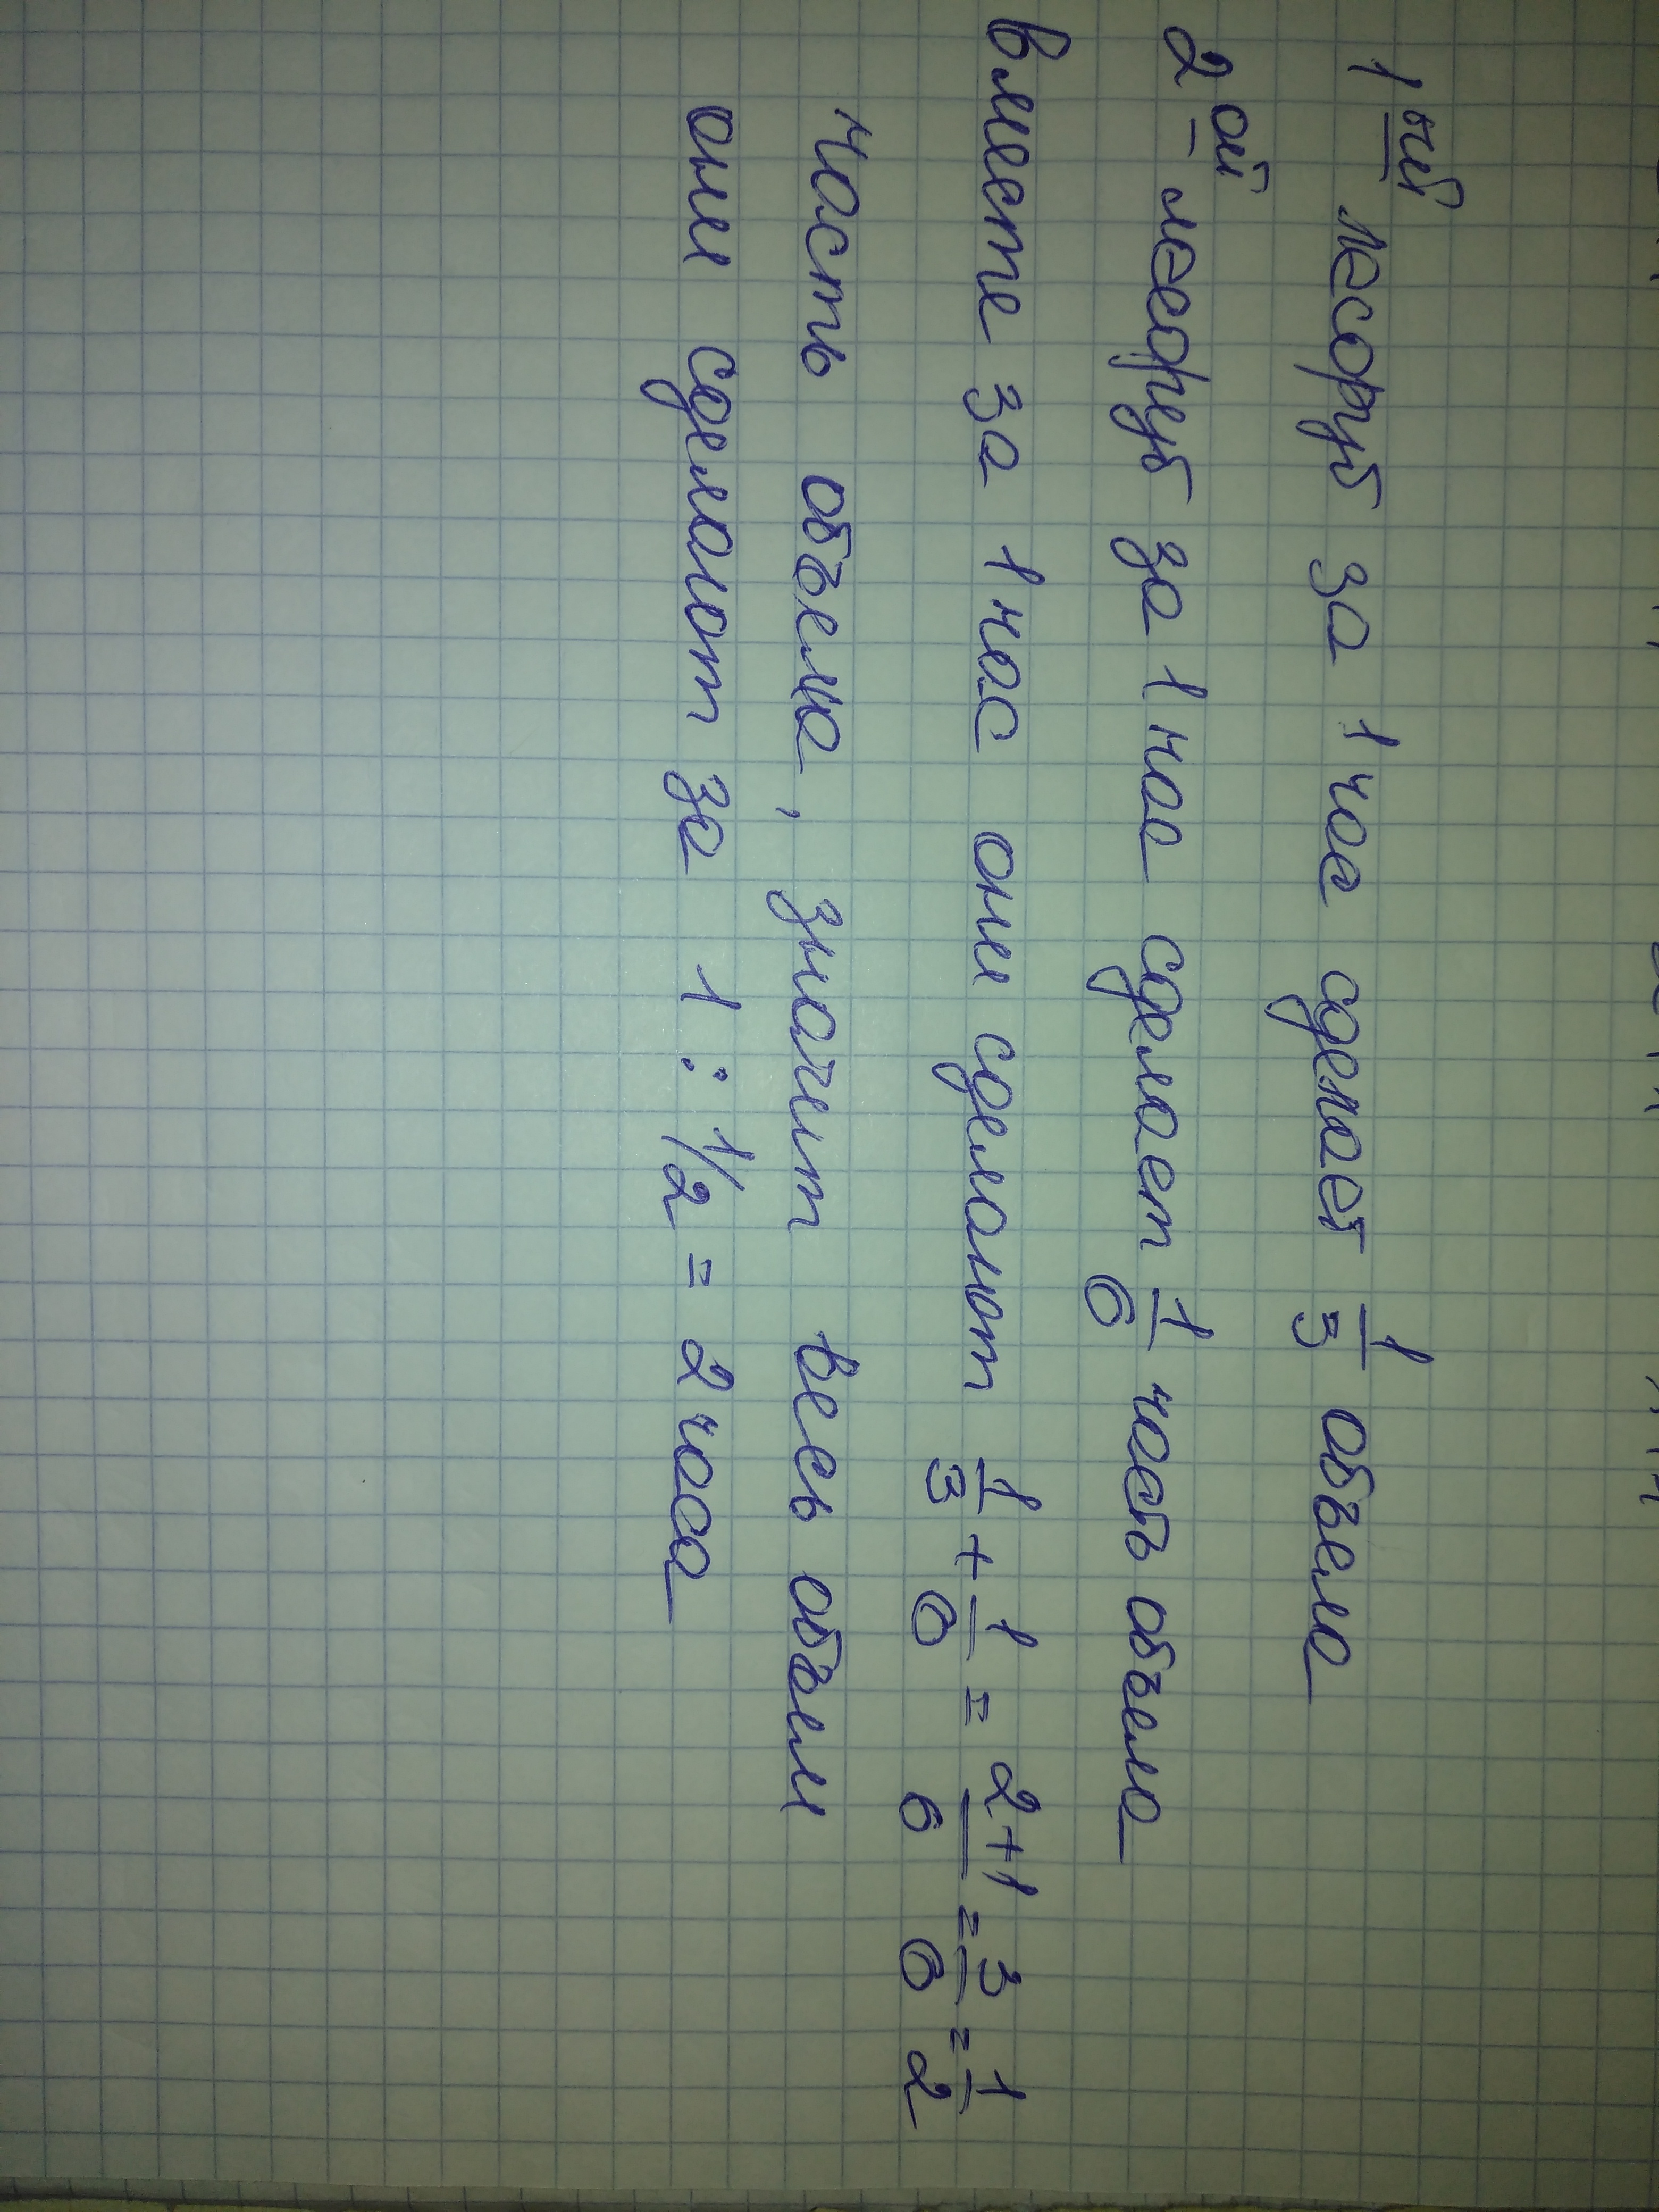 1ый лесоруб за 1 час сделает 1/3 объема
2ой лесоруб за 1 час сделает 1/6 часть объема
Вместе за 1 час они сделают 1/3 + 1/6 = 2+1/6 = 3/6 = 1/2
часть объема, значит весь объем
они сделают за 1 : 1/2 = 2 часа